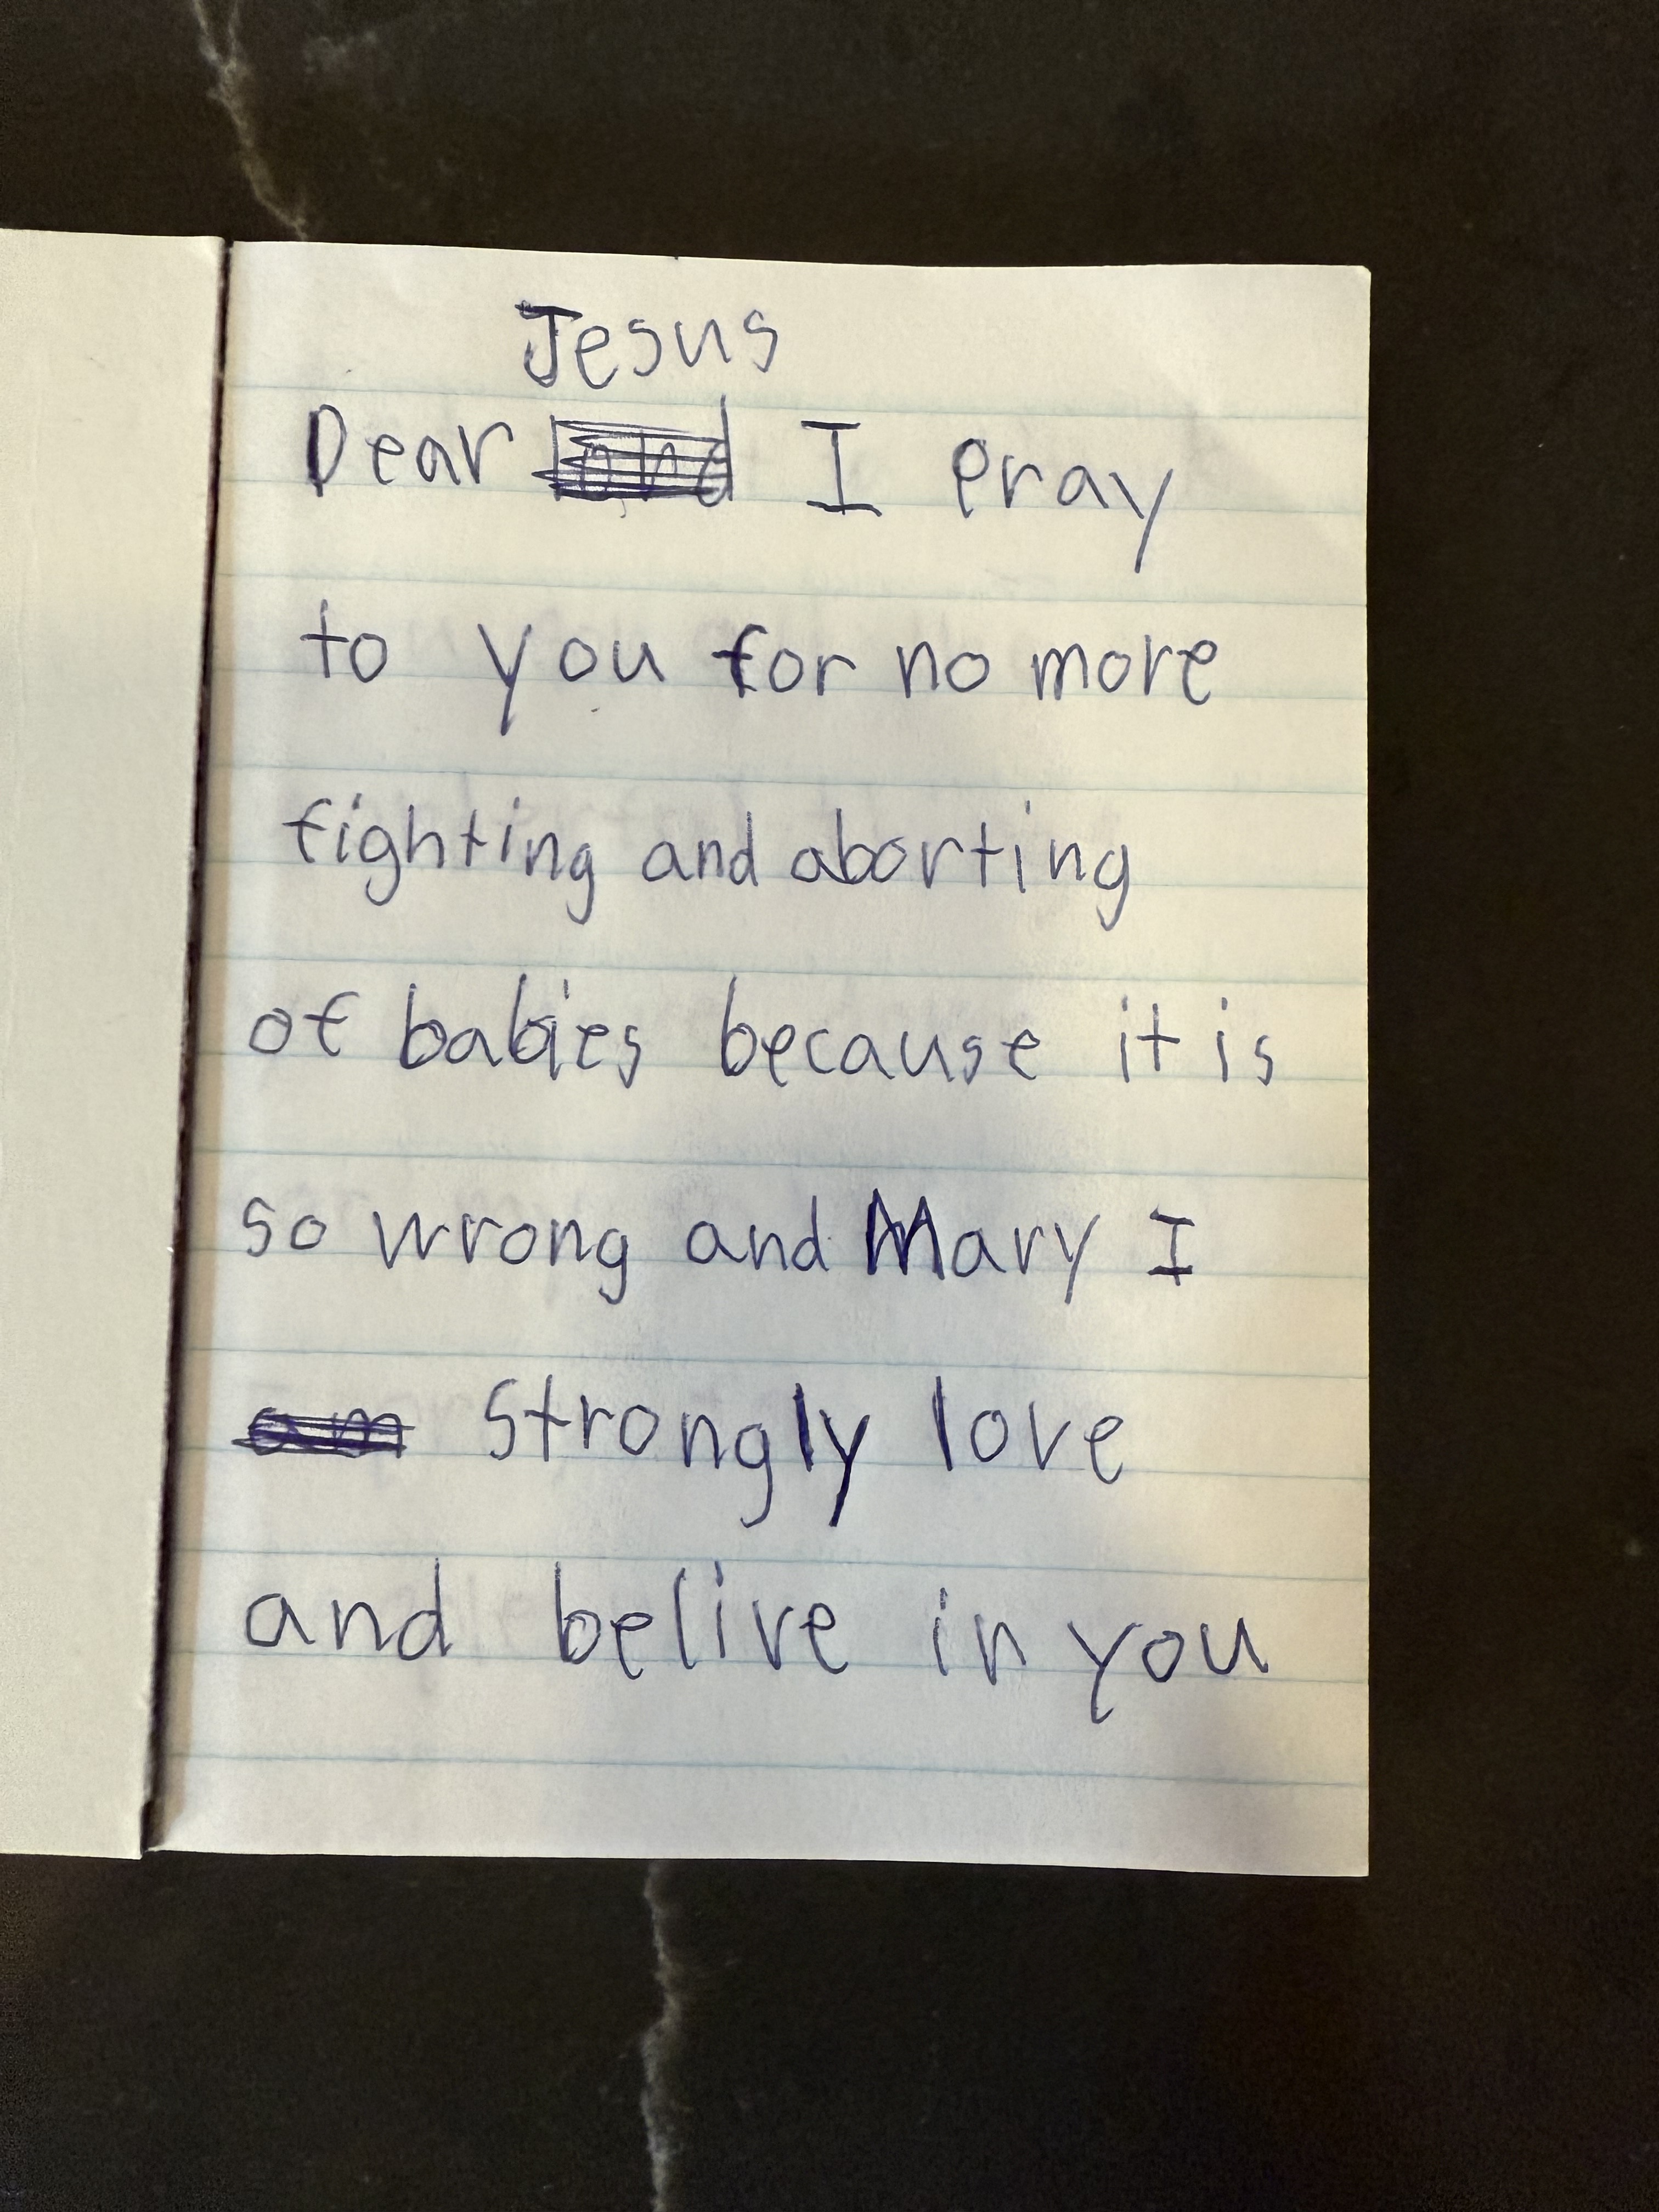 Jesus
Dear I pray
to you for no more
fighting and aborting
of babies because it is
so wrong and Mary I
am strongly love
and belive in you